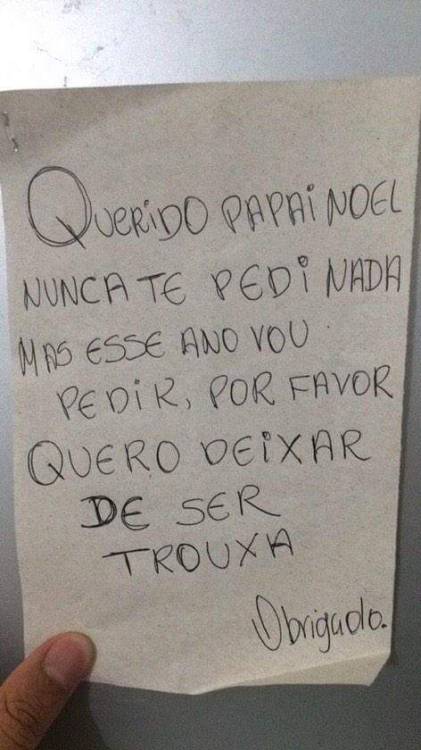 QUERIDO PAPAI NOEL
NUNCA TE PEDI NADA
MAS ESSE ANO VOU
PEDIR, POR FAVOR
QUERO DEIXAR
DE SER
TROUXA
Obrigado.